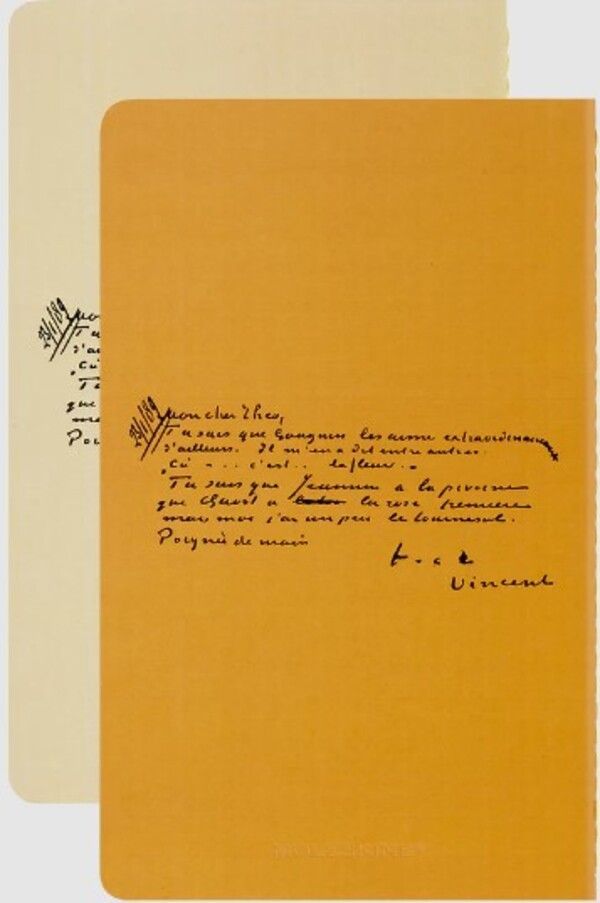 23/1/89
mon cher Theo,
Tu sais que Gauguin les aime extraordinairement
d'ailleurs. Il m'en a dit entre autres.
„Ça - .. c'est .. la fleur. -
Tu sais que Jeannin a la pivoine
que Quost a la rose tremiere
mais moi j'ai un peu le tournesol.
Poignée de main
t. a t
Vincent
23/1/89
mon
Tu
d'ai
„Ça
Tu
que
ma
Poi